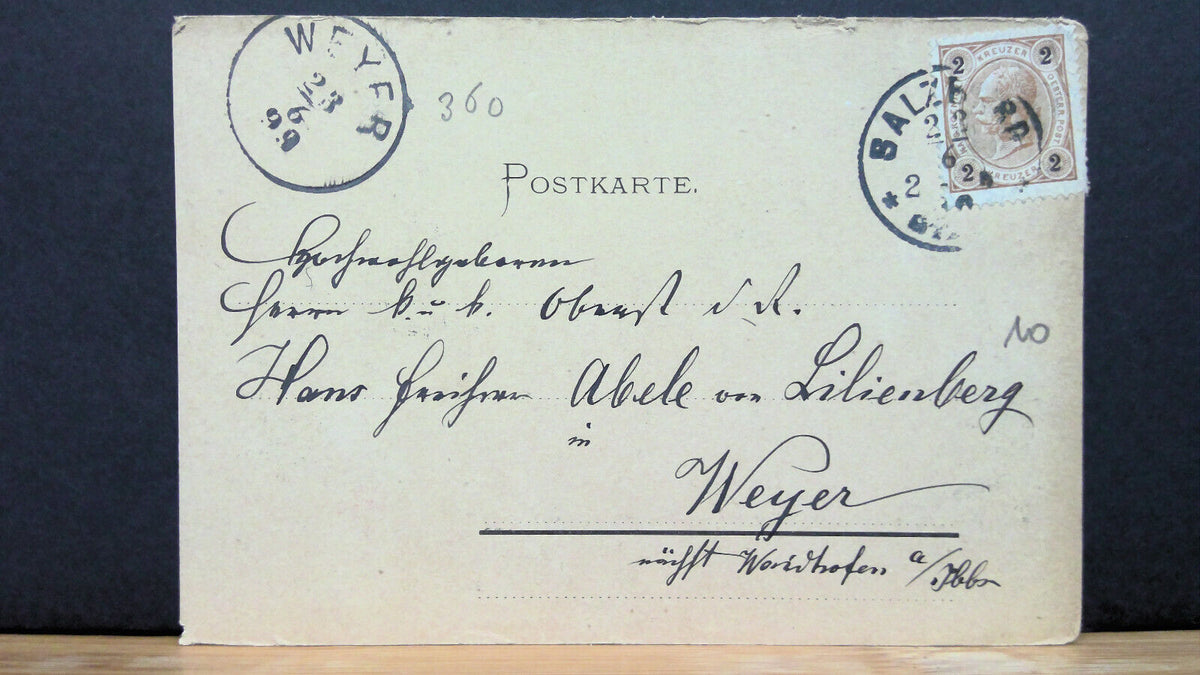 WEYER
23
6
99
360
2 KREUZER 2
OESTERR.POST.
2 KREUZER 2
BALZ
2
POSTKARTE.
Hochwohlgeboren
Herrn k. u. k. Oberst d. R.
Hans Freiherrn Abele von Lilienberg
10
in
Weyer
nächst Waidhofen a/Ybbs